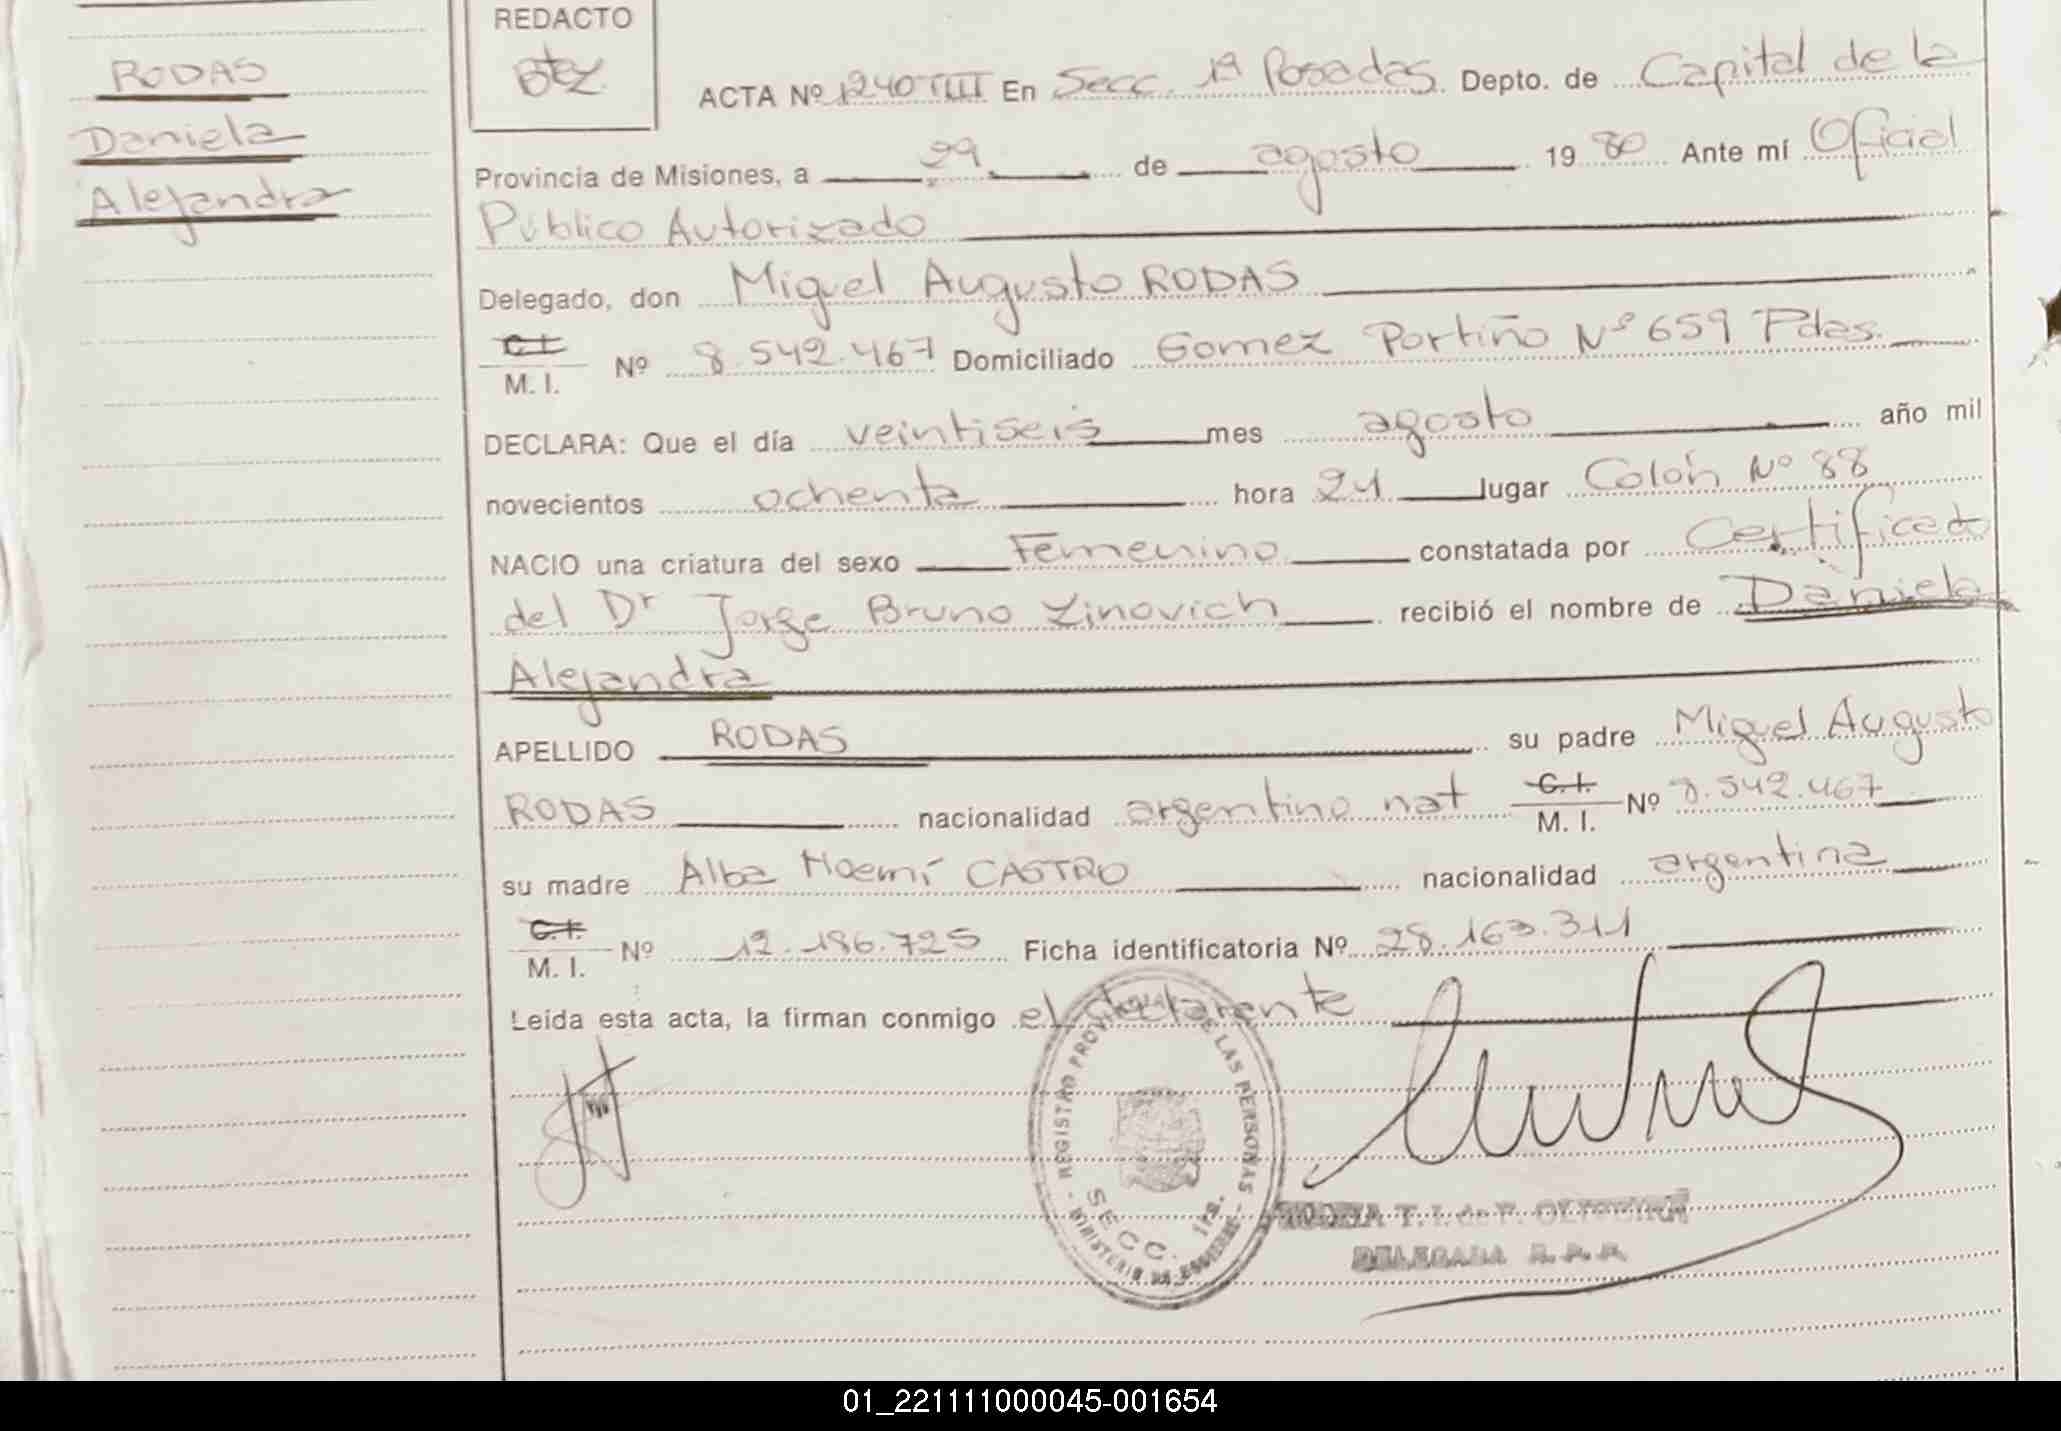 REDACTO
RODAS
Daniela
Alejandra
ACTA Nº 1240 TIII En Secc. 1ª Posadas. Depto. de Capital de la
Provincia de Misiones, a 29 de agosto 1980 Ante mí Oficial
Público Autorizado
Delegado, don Miguel Augusto RODAS
C.I. M. I. Nº 8.542.467 Domiciliado Gomez Portiño Nº 659 Pdas.
DECLARA: Que el día veintiseis mes agosto año mil
novecientos ochenta hora 21 lugar Colón Nº 88
NACIO una criatura del sexo Femenino constatada por Certificado
del Dr Jorge Bruno Zinovich recibió el nombre de Daniela
Alejandra
APELLIDO RODAS su padre Miguel Augusto
RODAS nacionalidad argentino nat C.I. M. I. Nº 8.542.467
su madre Alba Noemí CASTRO nacionalidad argentina
C.I. M. I. Nº 12.186.725 Ficha identificatoria Nº 28.163.311
Leida esta acta, la firman conmigo el declarante
REGISTRO PROVINCIAL DE LAS PERSONAS
SECC. 1ra.
T. I. de F. OLIVEIRA
DELEGADA
01_221111000045-001654